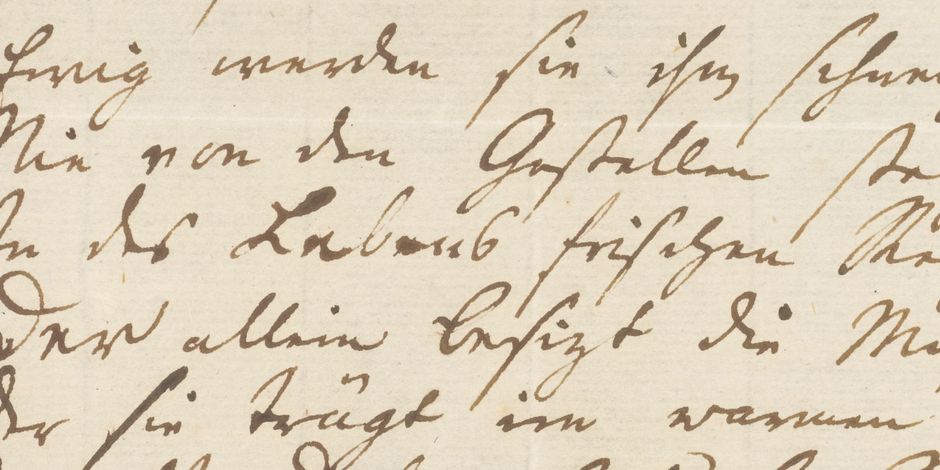 Ewig werden sie ihm schwe
Nie von den Gestellen ste
In des Lebens frischen Re
Der allein besizt die Mu
Der sie trägt im warmen